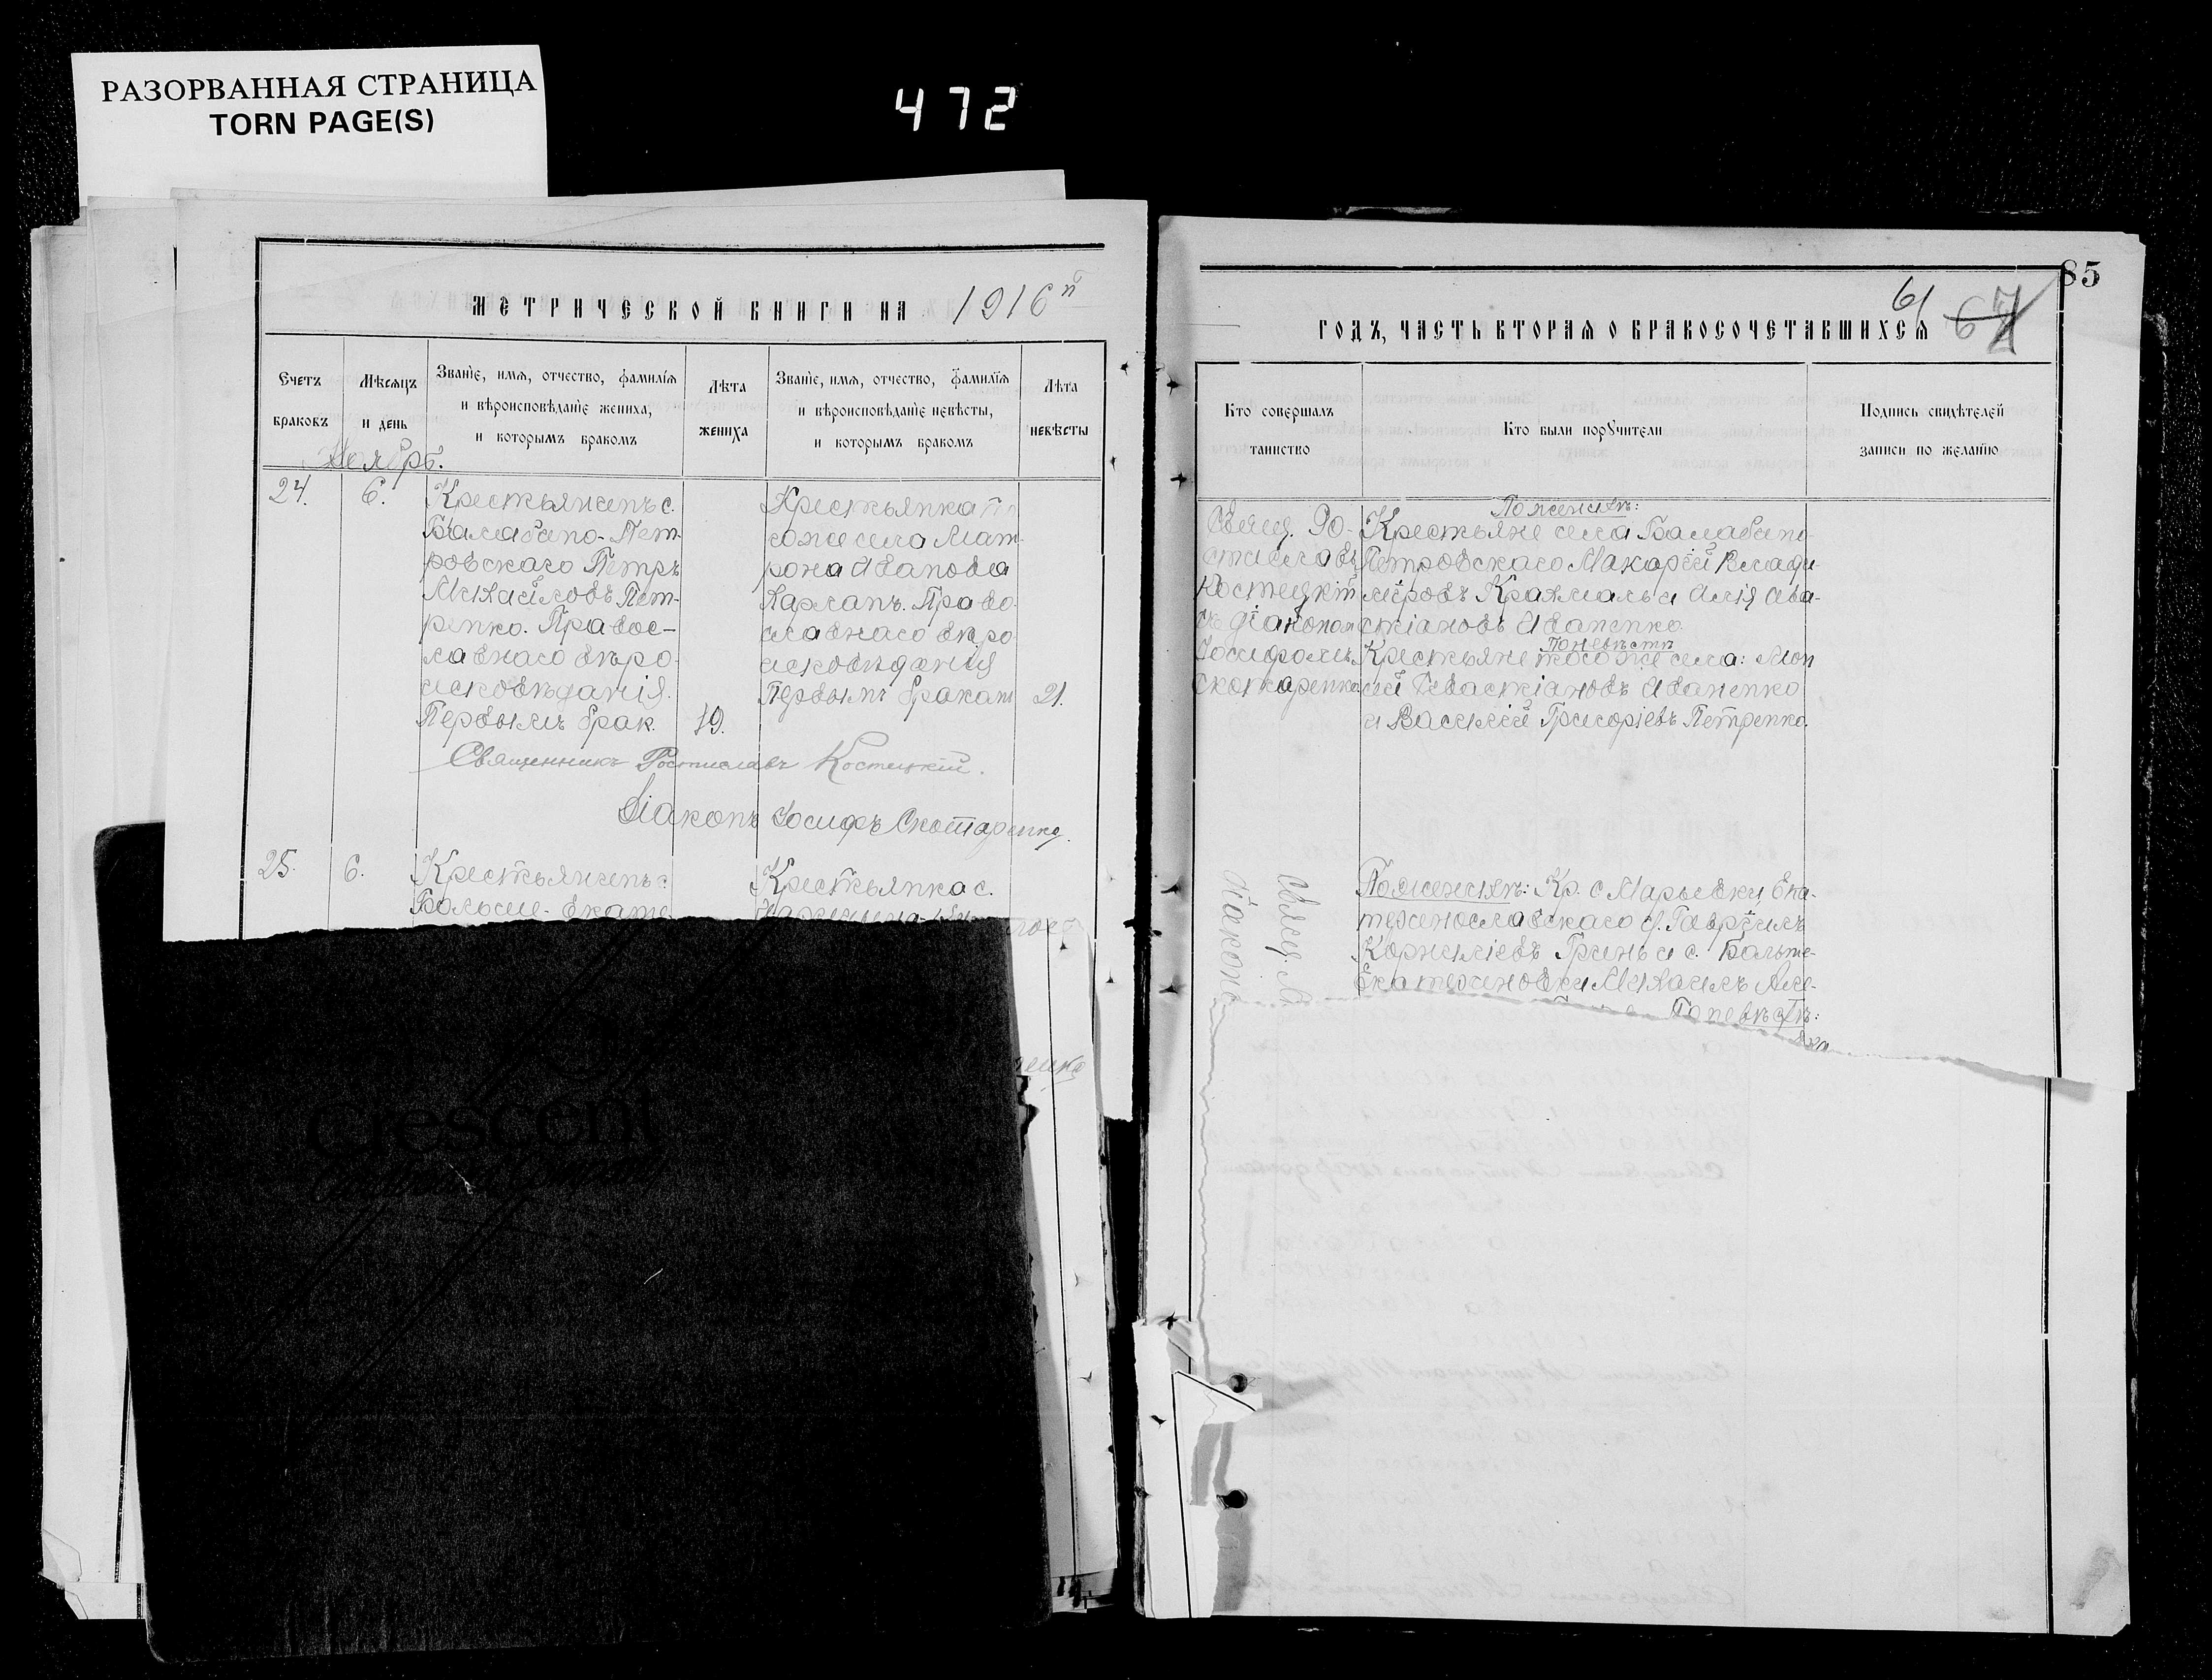 РАЗОРВАННАЯ СТРАНИЦА
TORN PAGE(S)
472
МЕТРИЧЕСКОЙ КНИГИ НА 1916й
Счетъ браковъ
Мѣсяцъ и день
Званіе, имя, отчество, фамилія
и вѣроисповѣданіе жениха,
и которымъ бракомъ
Лѣта жениха
Званіе, имя, отчество, фамилія
и вѣроисповѣданіе невѣсты,
и которымъ бракомъ
Лѣта невѣсты
Ноябрь.
24.
6.
Крестьянинъ с.
Балабано-Пет-
ровскаго Петръ
Михайловъ Пет-
ренко. Правос-
лавнаго вѣро-
исповѣданія.
Первымъ брак.
19.
Крестьянка
того же села Мат-
рона Иванова
Карланъ. Право-
славнаго вѣро
исповѣданія
Первымъ бракомъ
21.
Священникъ Ростиславъ Костецкій.
Діаконъ Іосифъ Скотаренко.
25.
6.
Крестьянинъ с.
Больше-Екате
Крестьянка с.
85
61
67
ГОДЪ, ЧАСТЬ ВТОРАЯ О БРАКОСОЧЕТАВШИХСЯ
Кто совершалъ
таинство
Кто были поручители
Подпись свидѣтелей
записи по желанію
Свящ. Ро-
стиславъ
Костецкій
съ діакономъ
Іосифомъ
Скотаренко
По женихѣ:
Крестьяне села Балабано-
Петровскаго Макарій Влади-
міровъ и Илія
Иваненко.
По невѣстѣ
Крестьяне того же села:
Севастіановъ Иваненко
и Василій Григоріевъ Петренко.
Свящ.
Діаконъ
По женихѣ: Кр. с Марьевки, Ека-
теринославскаго у. Гавріилъ
Корниліевъ Гринь и с. Больше-
Екатериновки Михаилъ Але-
По невѣстѣ:
Crescent